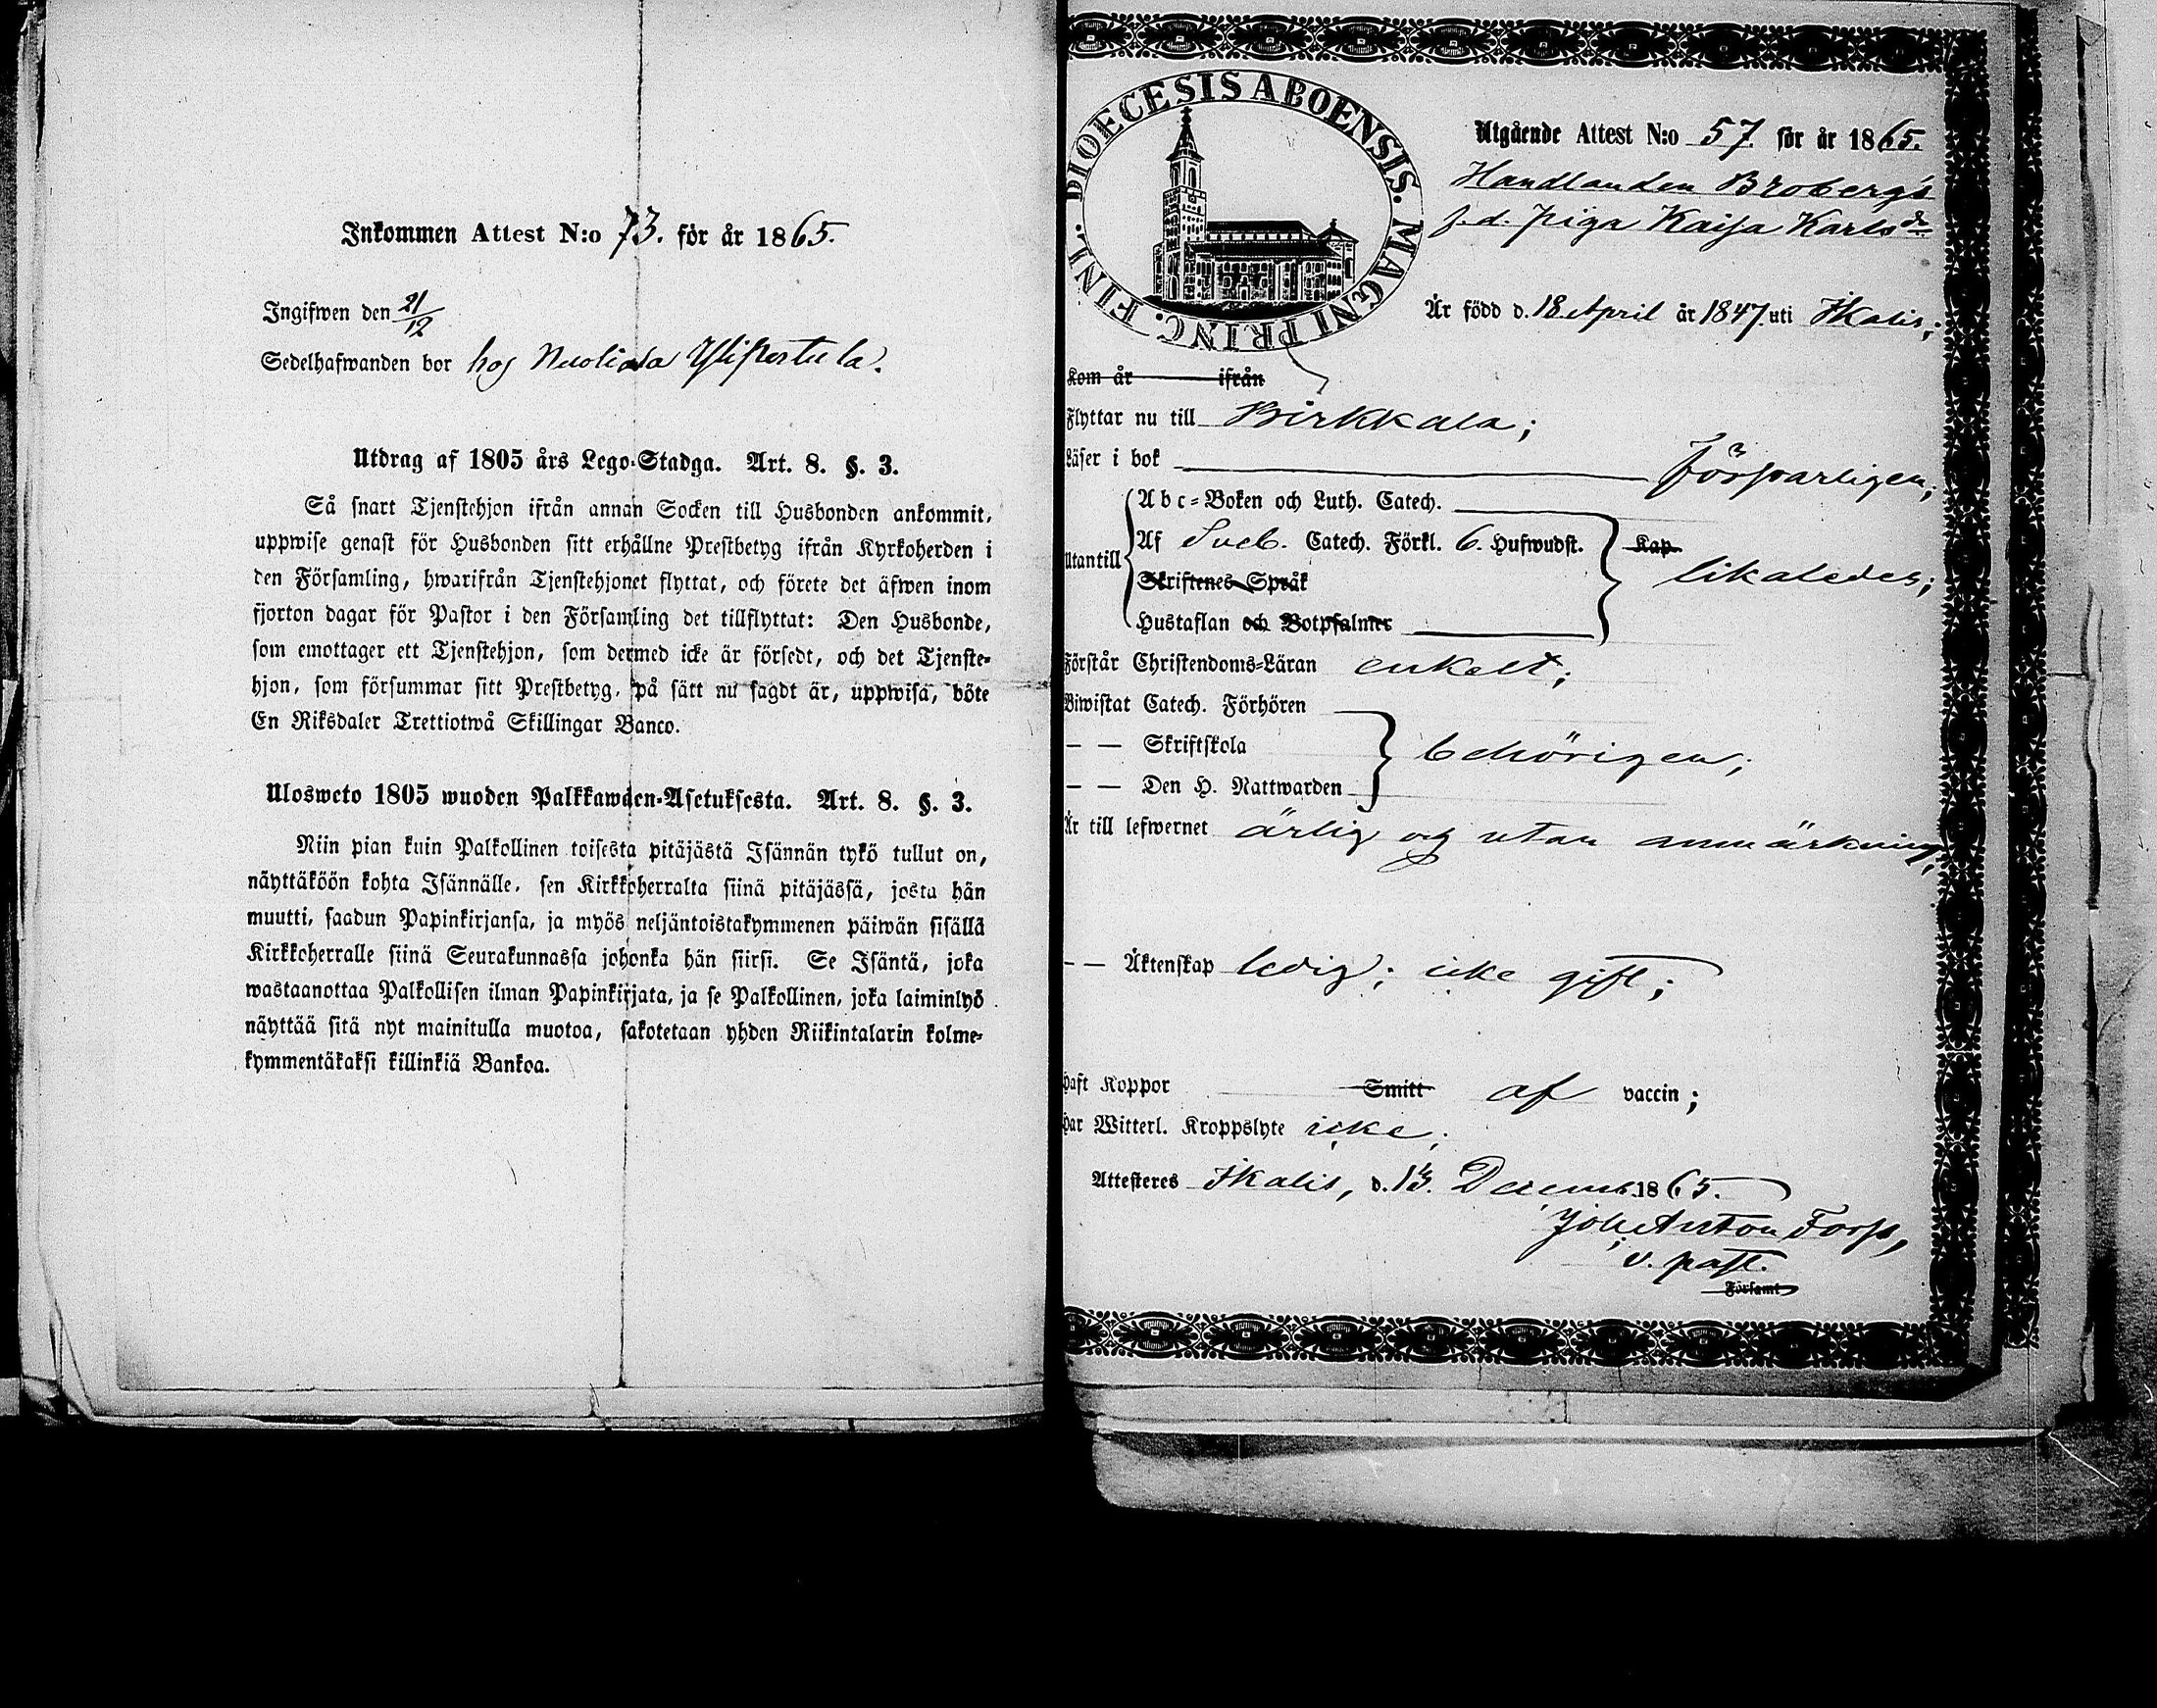 Inkommen Attest N:o 73. för år 1865.
Ingifwen den 21/12
Sedelhafwanden bor hos Nuoliala Ylipertula.
Utdrag af 1805 års Lego-Stadga. Art. 8. §. 3.
Så snart Tjenstehjon ifrån annan Socken till Husbonden ankommit,
uppwise genast för Husbonden sitt erhållne Prestbetyg ifrån Kyrkoherden i
den Församling, hwarifrån Tjenstehjonet flyttat, och förete det äfwen inom
fjorton dagar för Pastor i den Församling det tillflyttat: Den Husbonde,
som emottager ett Tjenstehjon, som dermed icke är försedt, och det Tjenste-
hjon, som försummar sitt Prestbetyg, på sätt nu sagdt är, uppwisa, böte
En Riksdaler Trettiotwå Skillingar Banco.
Ulosweto 1805 wuoden Palkkawäen-Asetuksesta. Art. 8. §. 3.
Niin pian kuin Palkollinen toisesta pitäjästä Isännän tykö tullut on,
näyttäköön kohta Isännälle, sen Kirkkoherralta siinä pitäjässä, josta hän
muutti, saadun Papinkirjansa, ja myös neljäntoistakymmenen päiwän sisällä
Kirkkoherralle siinä Seurakunnassa johonka hän siirsi. Se Isäntä, joka
wastaanottaa Palkollisen ilman Papinkirjata, ja se Palkollinen, joka laiminlyö
näyttää sitä nyt mainitulla muotoa, sakotetaan yhden Riikintalarin kolme-
kymmentäkaksi killinkiä Bankoa.
DIOECESIS ABOENSIS. MAGNI PRINC. FINL.
Utgående Attest N:o 57. för år 1865.
Handlanden Broberg's
f.d. piga Kaisa Karlsdr
Är född d. 18 April år 1847. uti Ikalis;
Kom år ifrån
Flyttar nu till Birkkala;
Läser i bok försvarligen;
Abc-Boken och Luth. Catech.
Utantill Af Sveb. Catech. Förkl. 6. Hufwudst. Kap likaledes;
Skriftenes Språk
Hustaflan och Botpsalmer
Förstår Christendoms-Läran enkelt;
Biwistat Catech. Förhören
— — Skriftskola behörigen;
— — Den H. Nattwarden
Är till lefwernet ärlig och utan anmärkning;
— — Äktenskap ledig; icke gift;
Haft Koppor Smitt af vaccin;
Har Witterl. Kroppslyte icke;
Attesteras Ikalis, d. 13. Decemb. 1865.
Joh. Anton Forss,
v. past.
Församl